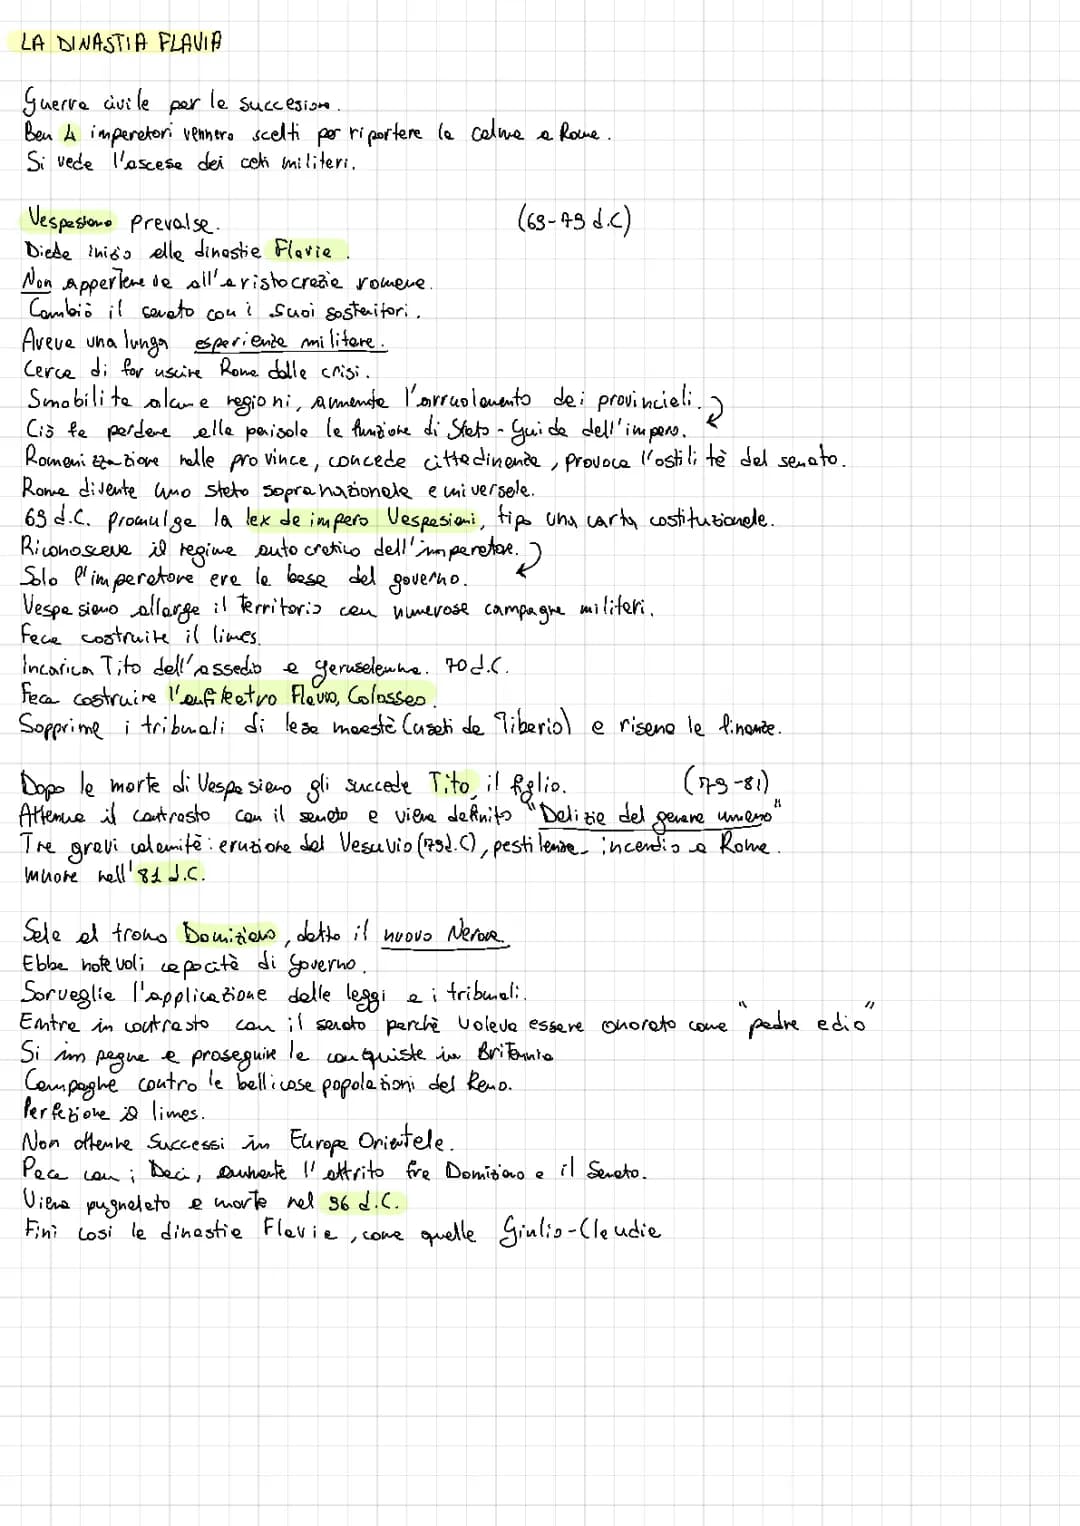 LA DINASTIA FLAVIA
Guerra civile per la succesione.
Ben 4 imperatori vennero scelti per riportare la calma a Roma.
Si vede l'ascesa dei ceti militari.
Vespasiano prevalse. (69-79 d.C)
Diede inizio alla dinastia Flavia.
Non apparteneva all'aristocrazia romana.
Cambiò il senato con i suoi sostenitori.
Aveva una lunga esperienza militare.
Cerca di far uscire Roma dalla crisi.
Smobilita alcune regioni, aumenta l'arruolamento dei provinciali.
Ciò fa perdere alla penisola la funzione di Stato-Guida dell'impero.
Romanizzazione nelle province, concede cittadinanza, provoca l'ostilità del senato.
Roma diventa uno stato sopranazionale e universale.
69 d.C. promulga la lex de impero Vespasiani, tipo una carta costituzionale.
Riconosceva il regime autocratico dell'imperatore.
Solo l'imperatore era la base del governo.
Vespasiano allarga il territorio con numerose campagne militari.
Fece costruire il limes.
Incarica Tito dell'assedio a gerusalemme. 70 d.C.
Feca costruire l'anfiteatro Flavio, Colosseo.
Sopprime i tribunali di lesa maestà (usati da Tiberio) e risana le finanze.
Dopo la morte di Vespasiano gli succede Tito, il figlio. (79-81)
Attenua il contrasto con il senato e viene definito "Delizia del genere umano"
Tre gravi calamità: eruzione del Vesuvio (79d.C), pestilenza, incendio a Roma.
Muore nell'81 d.C.
Sale al trono Domiziano, detto il nuovo Nerone
Ebbe notevoli capacità di Governo.
Sorveglia l'applicazione delle leggi e i tribunali.
Entra in contrasto con il senato perchè voleva essere onorato come "padre e dio"
Si impegna a proseguire le conquiste in Britannia
Campagne contro le bellicose popolazioni del Reno.
Perfeziona il limes.
Non ottenne successi in Europa Orientale.
Pace con i Daci, aumenta l'attrito fra Domiziano e il Senato.
Viene pugnalato a morte nel 96 d.C.
Finì così la dinastia Flavia, come quella Giulio-Claudia